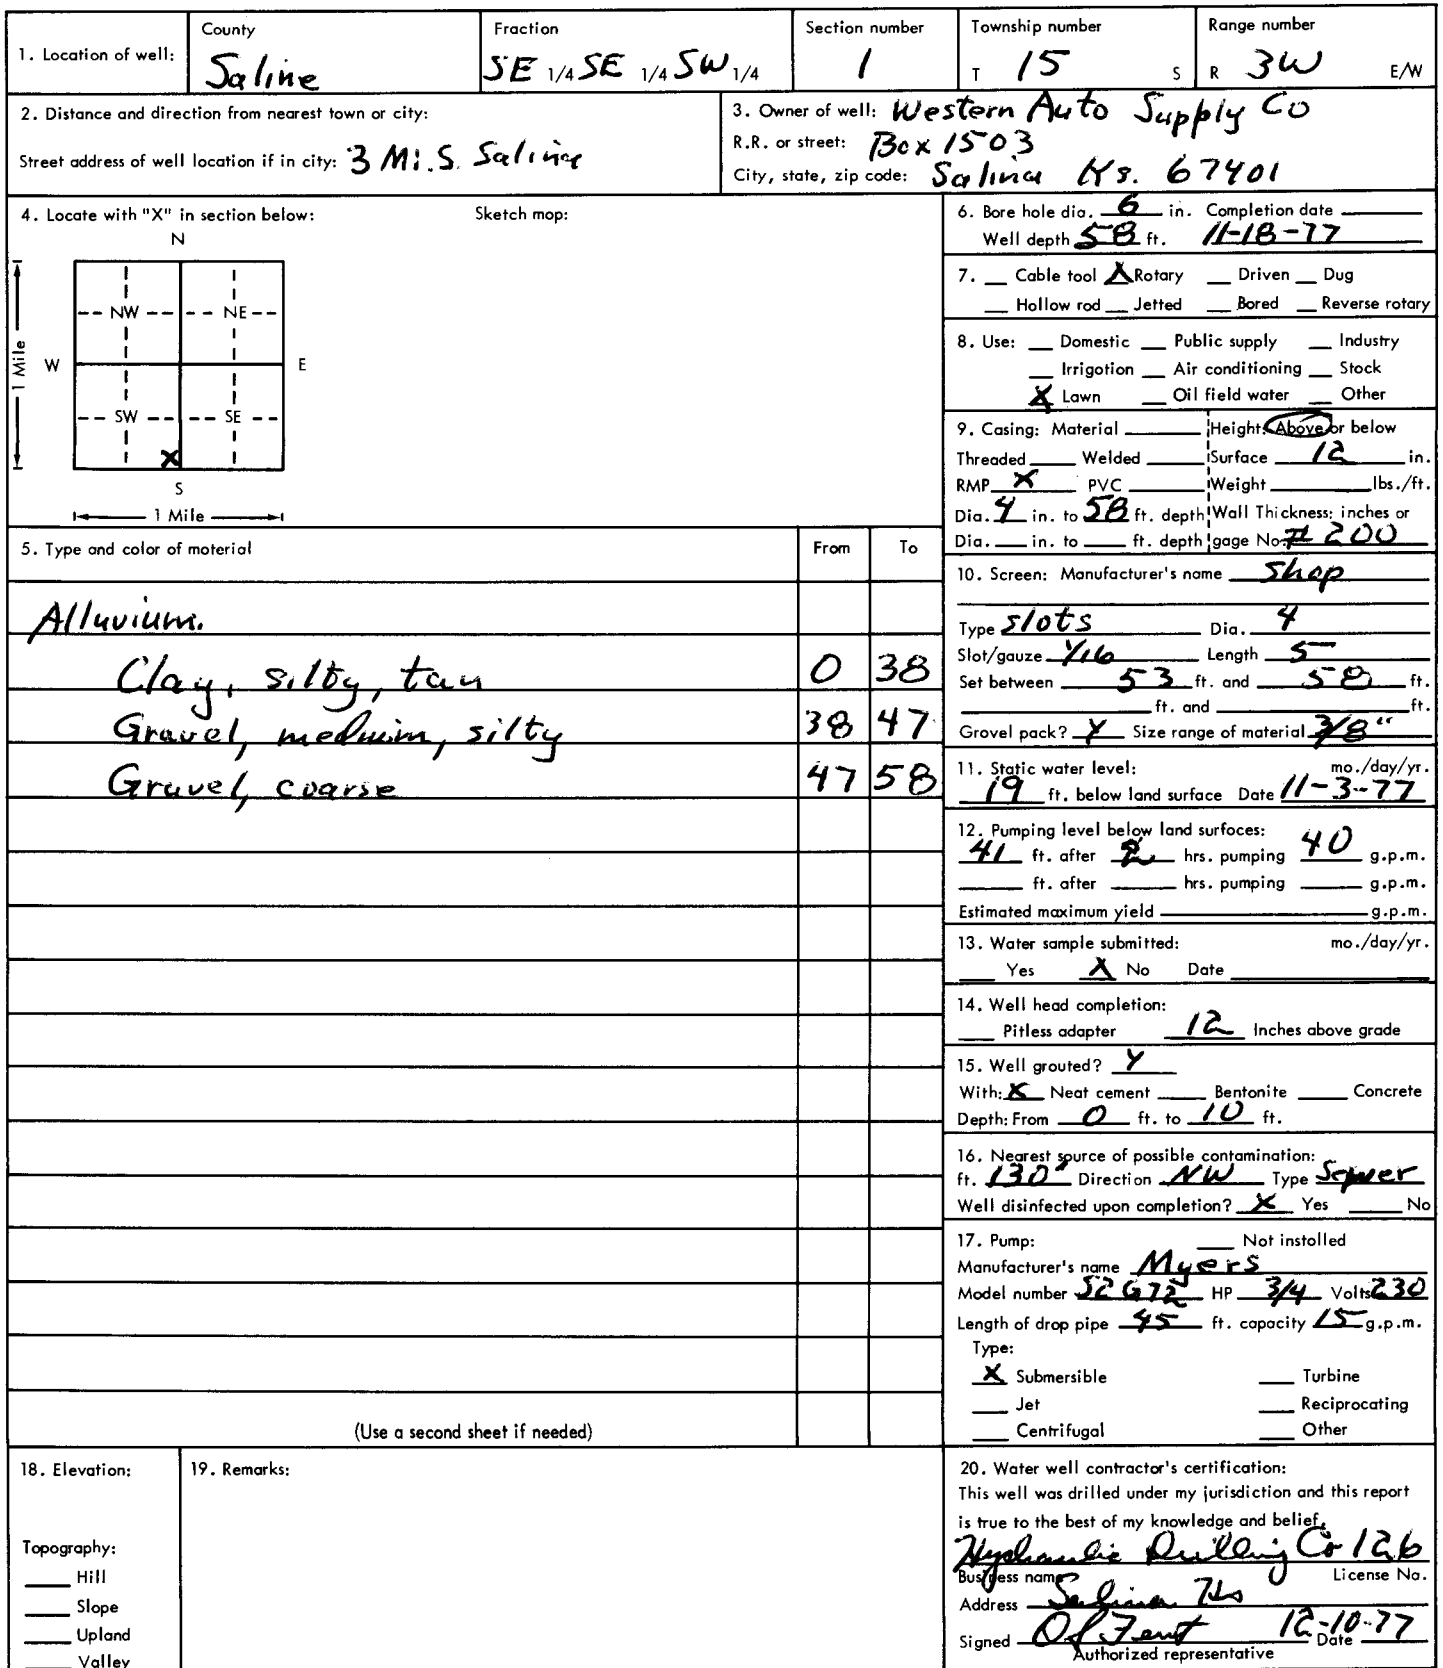 1. Location of well:
County
Saline
Fraction
SE 1/4 SE 1/4 SW 1/4
Section number
1
Township number
T 15 S
Range number
R 3W E/W
2. Distance and direction from nearest town or city:
Street address of well location if in city: 3 Mi. S. Salina
3. Owner of well: Western Auto Supply Co
R.R. or street: Box 1503
City, state, zip code: Salina Ks. 67401
4. Locate with "X" in section below:
Sketch map:
N
NW NE
W E
1 Mile
SW SE
X
S
1 Mile
5. Type and color of material From To
Alluvium.
Clay, silty, tan 0 38
Gravel, medium, silty 38 47
Gravel, coarse 47 58
(Use a second sheet if needed)
6. Bore hole dia. 6 in. Completion date
Well depth 58 ft. 11-18-77
7. Cable tool X Rotary Driven Dug
Hollow rod Jetted Bored Reverse rotary
8. Use: Domestic Public supply Industry
Irrigation Air conditioning Stock
X Lawn Oil field water Other
9. Casing: Material Height: Above or below
Threaded Welded Surface 12 in.
RMP X PVC Weight lbs./ft.
Dia. 4 in. to 58 ft. depth Wall Thickness: inches or
Dia. in. to ft. depth gage No. # 200
10. Screen: Manufacturer's name Shop
Type slots Dia. 4
Slot/gauze 1/16 Length 5
Set between 53 ft. and 58 ft.
ft. and ft.
Gravel pack? Y Size range of material 3/8"
11. Static water level: mo./day/yr.
19 ft. below land surface Date 11-3-77
12. Pumping level below land surfaces:
41 ft. after 2 hrs. pumping 40 g.p.m.
ft. after hrs. pumping g.p.m.
Estimated maximum yield g.p.m.
13. Water sample submitted: mo./day/yr.
Yes X No Date
14. Well head completion:
Pitless adapter 12 Inches above grade
15. Well grouted? Y
With: X Neat cement Bentonite Concrete
Depth: From 0 ft. to 10 ft.
16. Nearest source of possible contamination:
ft. 130' Direction NW Type Sewer
Well disinfected upon completion? X Yes No
17. Pump: Not installed
Manufacturer's name Myers
Model number S2G72 HP 3/4 Volts 230
Length of drop pipe 45 ft. capacity 15 g.p.m.
Type:
X Submersible Turbine
Jet Reciprocating
Centrifugal Other
18. Elevation:
Topography:
Hill
Slope
Upland
Valley
19. Remarks:
20. Water well contractor's certification:
This well was drilled under my jurisdiction and this report
is true to the best of my knowledge and belief.
Hydraulic Drilling Co 126
Business name License No.
Address Salina Ks
Signed Fent 12-10-77 Date
Authorized representative